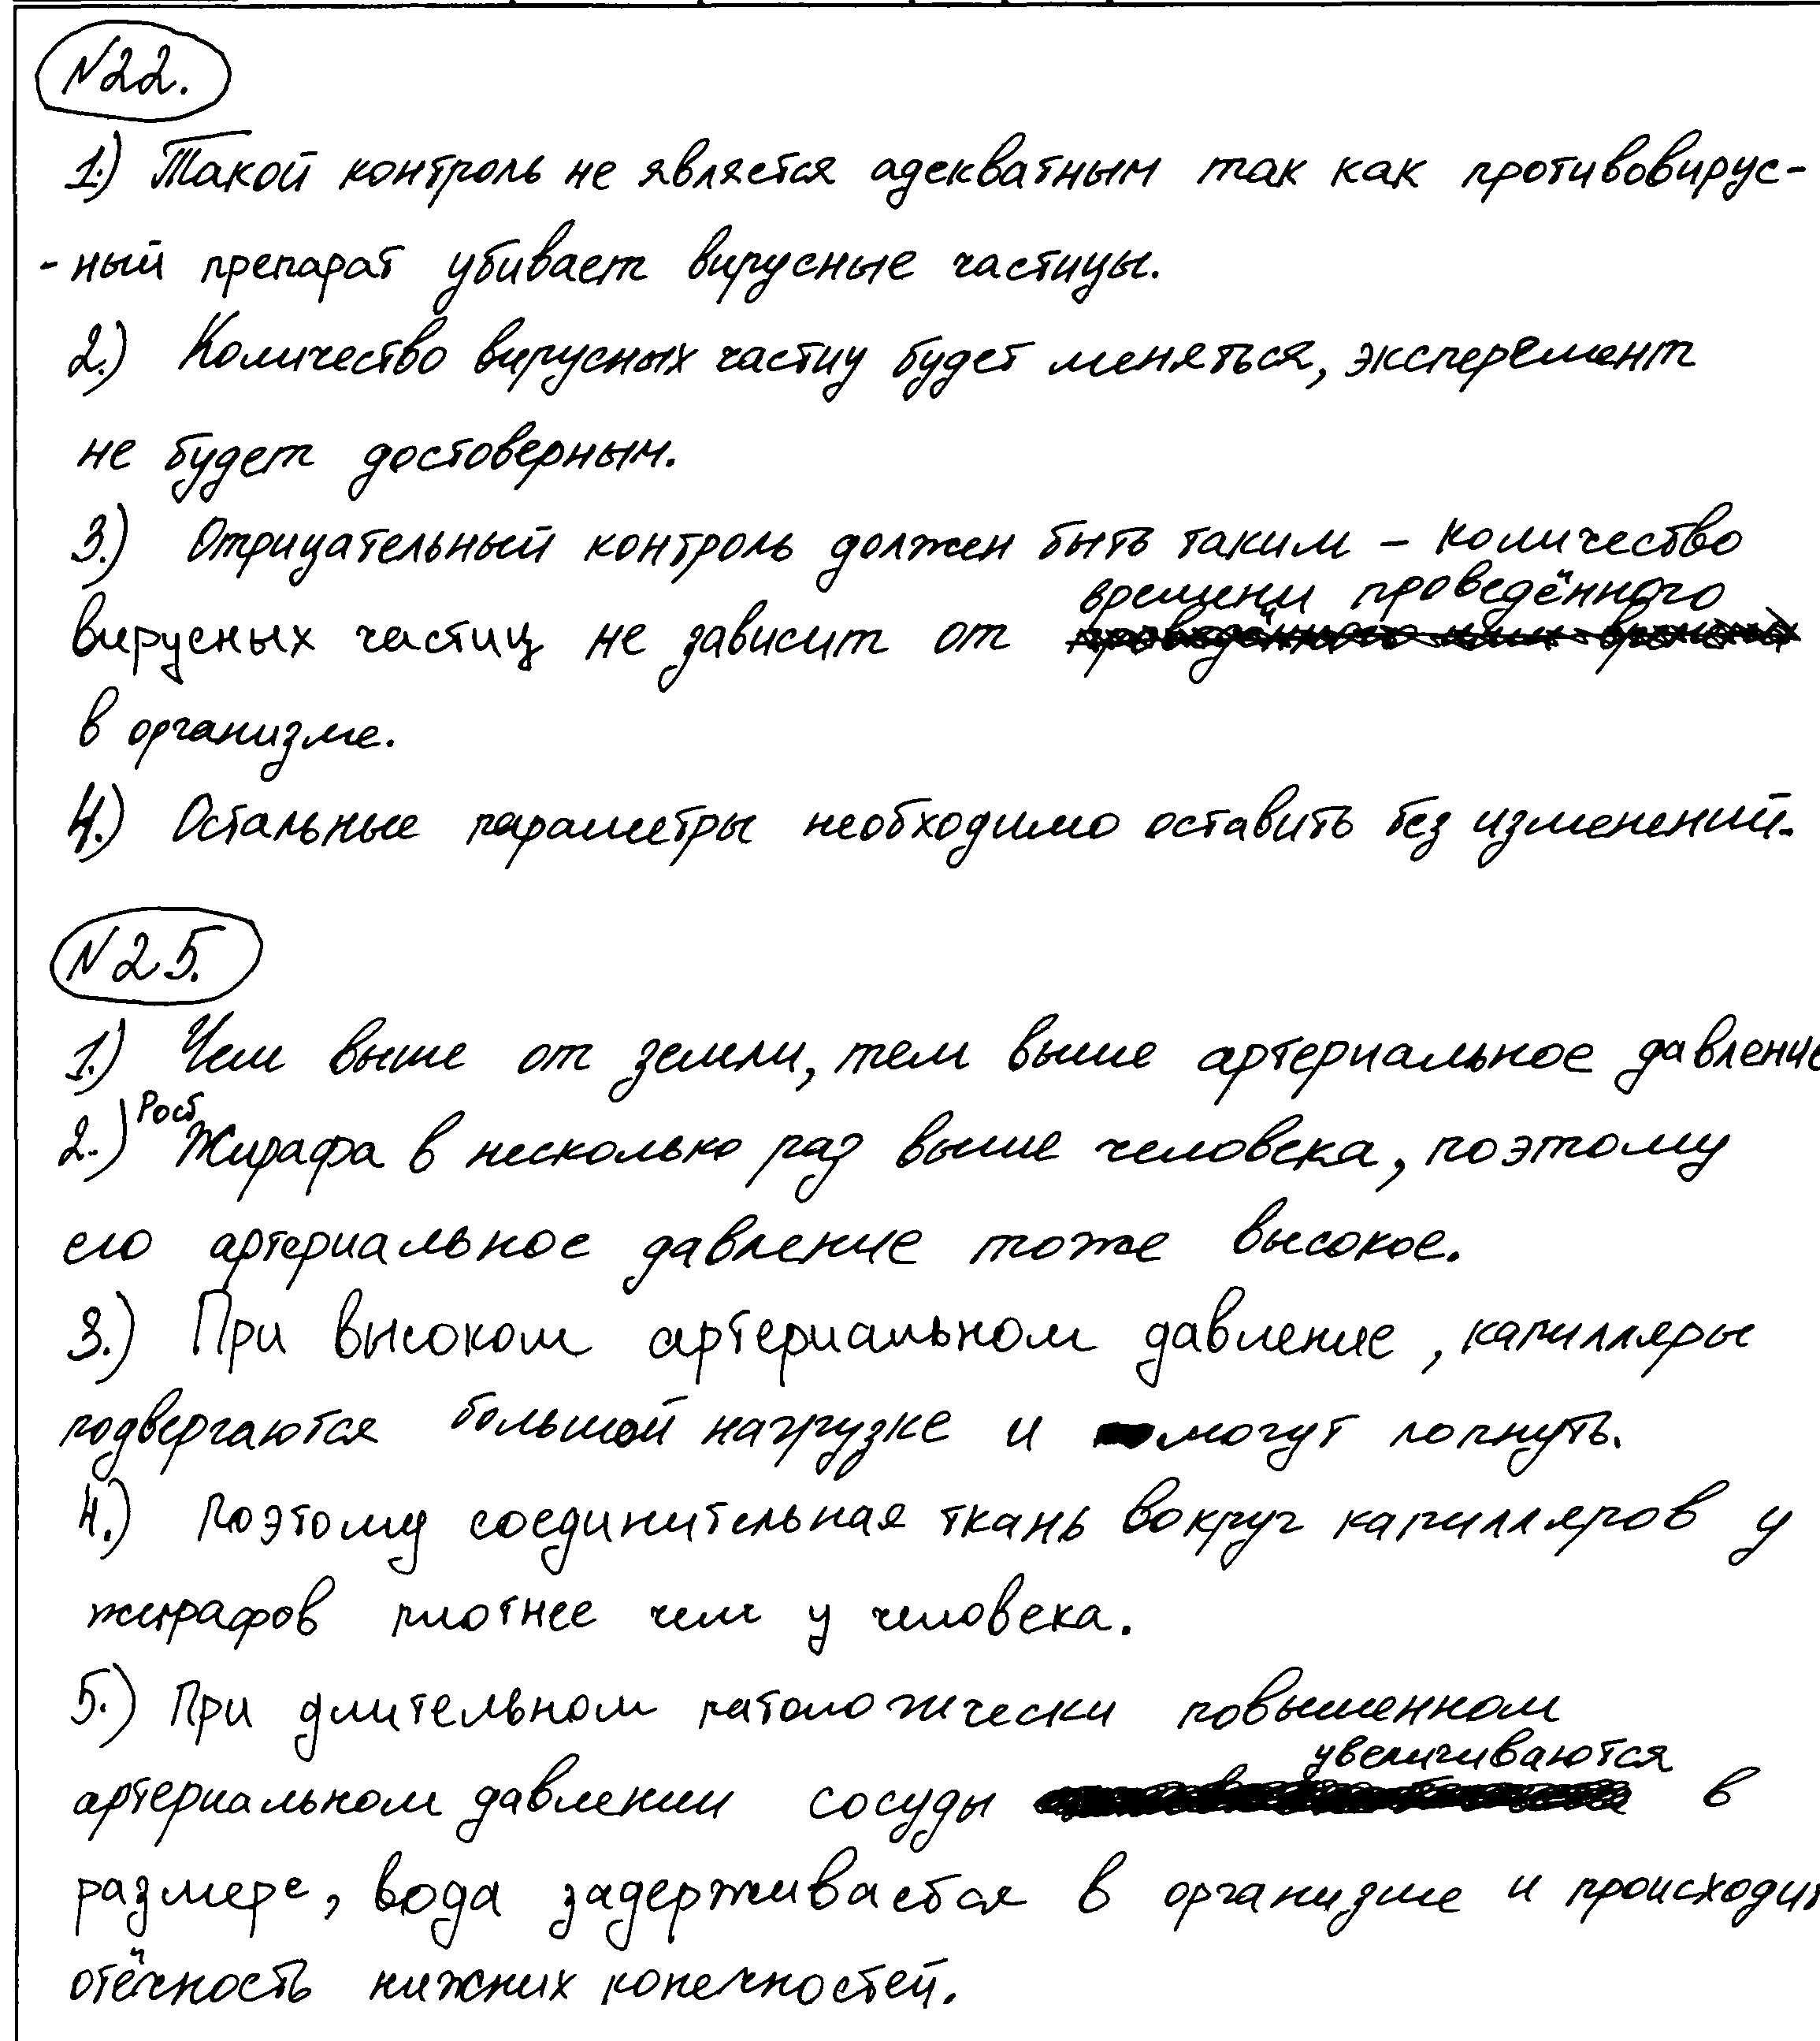 N22.
1.) Такой контроль не является адекватным так как противовирус-
-ный препарат убивает вирусные частицы.
2.) Количество вирусных частиц будет меняться, эксперемент
не будет достоверным.
3.) Отрицательный контроль должен быть таким – количество
времени проведённого
вирусных частиц не зависит от
в организме.
4.) Остальные параметры необходимо оставить без изменений.
N25.
1.) Чем выше от земли, тем выше артериальное давление
Рост
2.) Жирафа в несколько раз выше человека, поэтому
его артериальное давление тоже высокое.
3.) При высоком артериальном давление, капилляры
подвергаются большой нагрузке и могут лопнуть.
4.) Поэтому соединительная ткань вокруг капилляров у
жирафов плотнее чем у человека.
5.) При длительном патологически повышенном
увеличиваются
артериальном давлении сосуды в
размере, вода задерживается в организме и происходит
отёчность нижних конечностей.